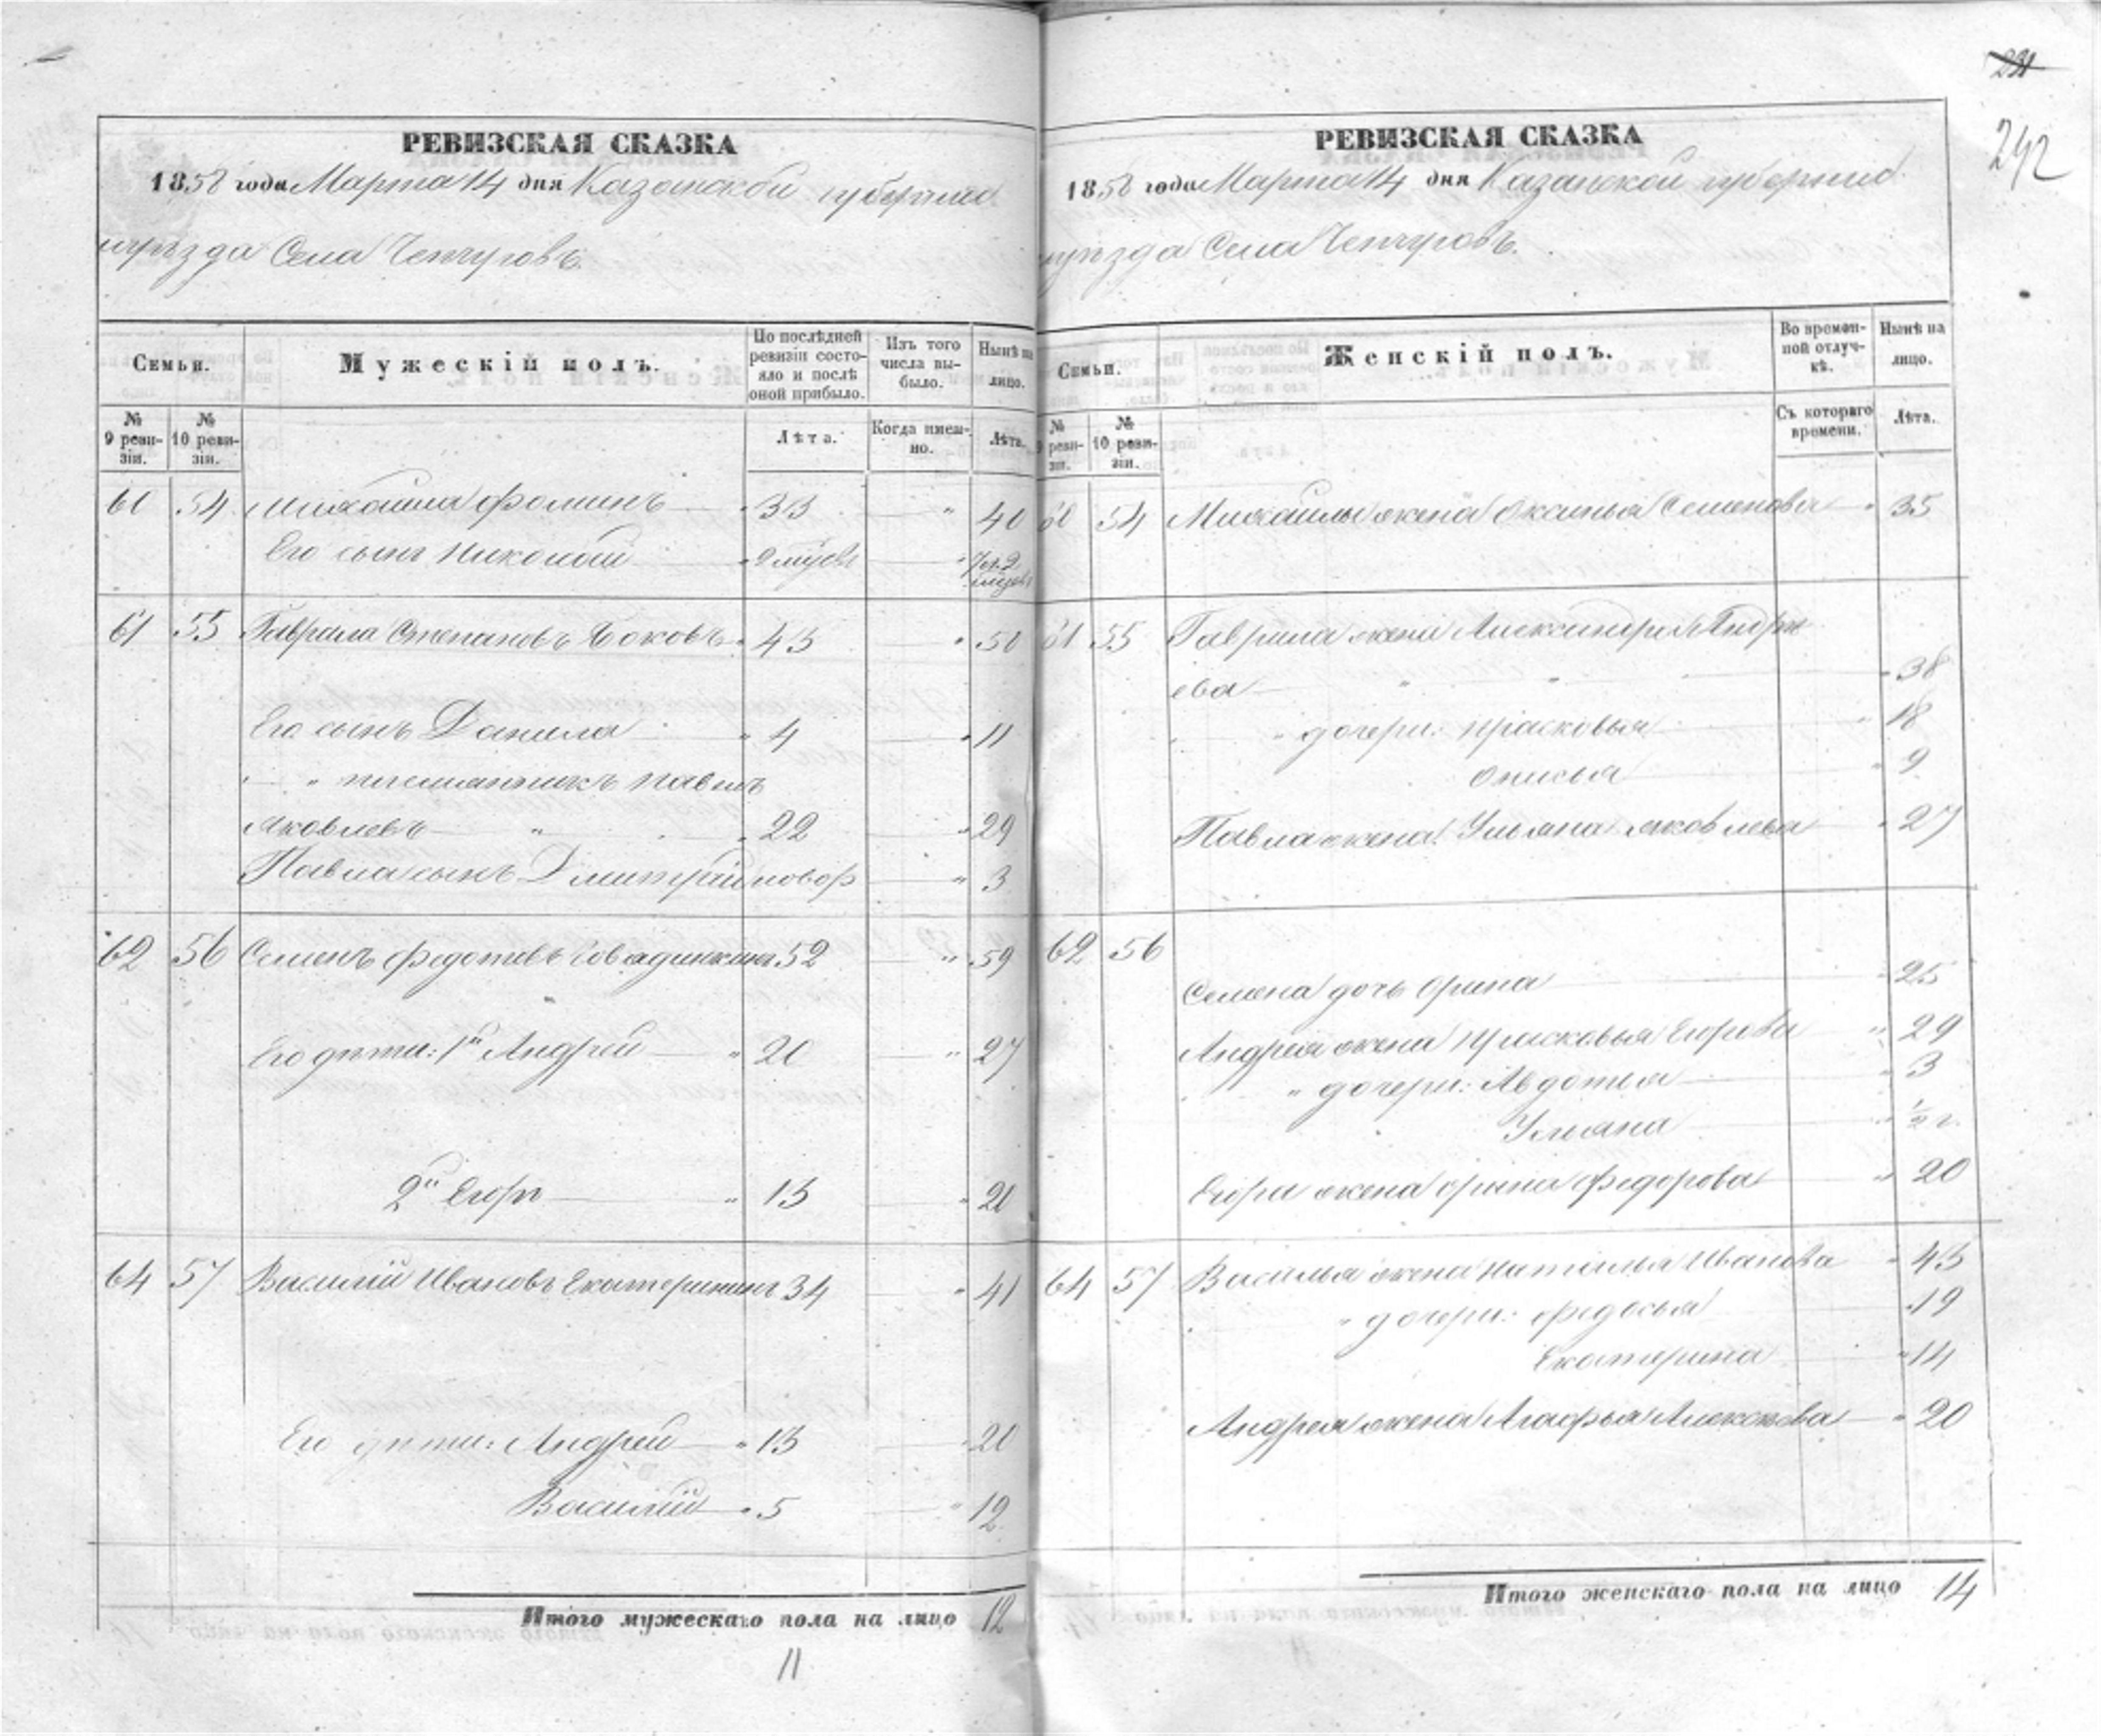 РЕВИЗСКАЯ СКАЗКА
1858 года Марта 14 дня Казанской губерніи
уѣзда Села Чепчуговъ.
Семьи.
Мужескій полъ.
По послѣдней ревизіи состояло и послѣ оной прибыло.
Изъ того числа выбыло.
Нынѣ на лицо.
№ 9 ревизіи.
№ 10 ревизіи.
Лѣта.
Когда именно.
Лѣта.
60 54 Михаила Фоминъ 33 " 40
Его сынъ Николай 9
61 55 Гаврила Степановъ 43 " 50
Его сынъ Данила " 4 " 11
" племянникъ Павелъ
Яковлевъ " 22 " 29
Павла сынъ Дмитрій новор " 3
62 56 Семенъ Федотовъ 52 " 59
Его дѣти: 1й Андрей " 20 " 27
2й Егоръ " 13 " 20
64 57 Василій Ивановъ Екатерининъ 34 " 41
Его дѣти: Андрей " 13 20
Василій " 5 " 12
Итого мужескаго пола на лицо 12
11
242
РЕВИЗСКАЯ СКАЗКА
1858 года Марта 14 дня Казанской губерніи
уѣзда Села Чепчуговъ.
Семьи.
Женскій полъ.
Во временной отлучкѣ.
Нынѣ на лицо.
№ 9 ревизіи.
№ 10 ревизіи.
Съ котораго времени.
Лѣта.
60 54 Михаилы жена Оксинья Семенова " 35
61 55 Гаврила жена Александра Андре
ева " " " 38
" дочери: Прасковья " 18
Онисья " 9
Павла жена Ульяна Яковлева " 27
62 56
Семена дочь Орина " 25
Андрея жена Прасковья Егорова " 29
" дочери: Авдотья " 3
Ульяна " ½ г.
Егора жена Орина Федорова " 20
64 57 Василья жена Наталья Иванова " 43
" дочери: Федосья " 19
Екатерина " 14
Андрея жена Агафья " 20
Итого женскаго пола на лицо 14